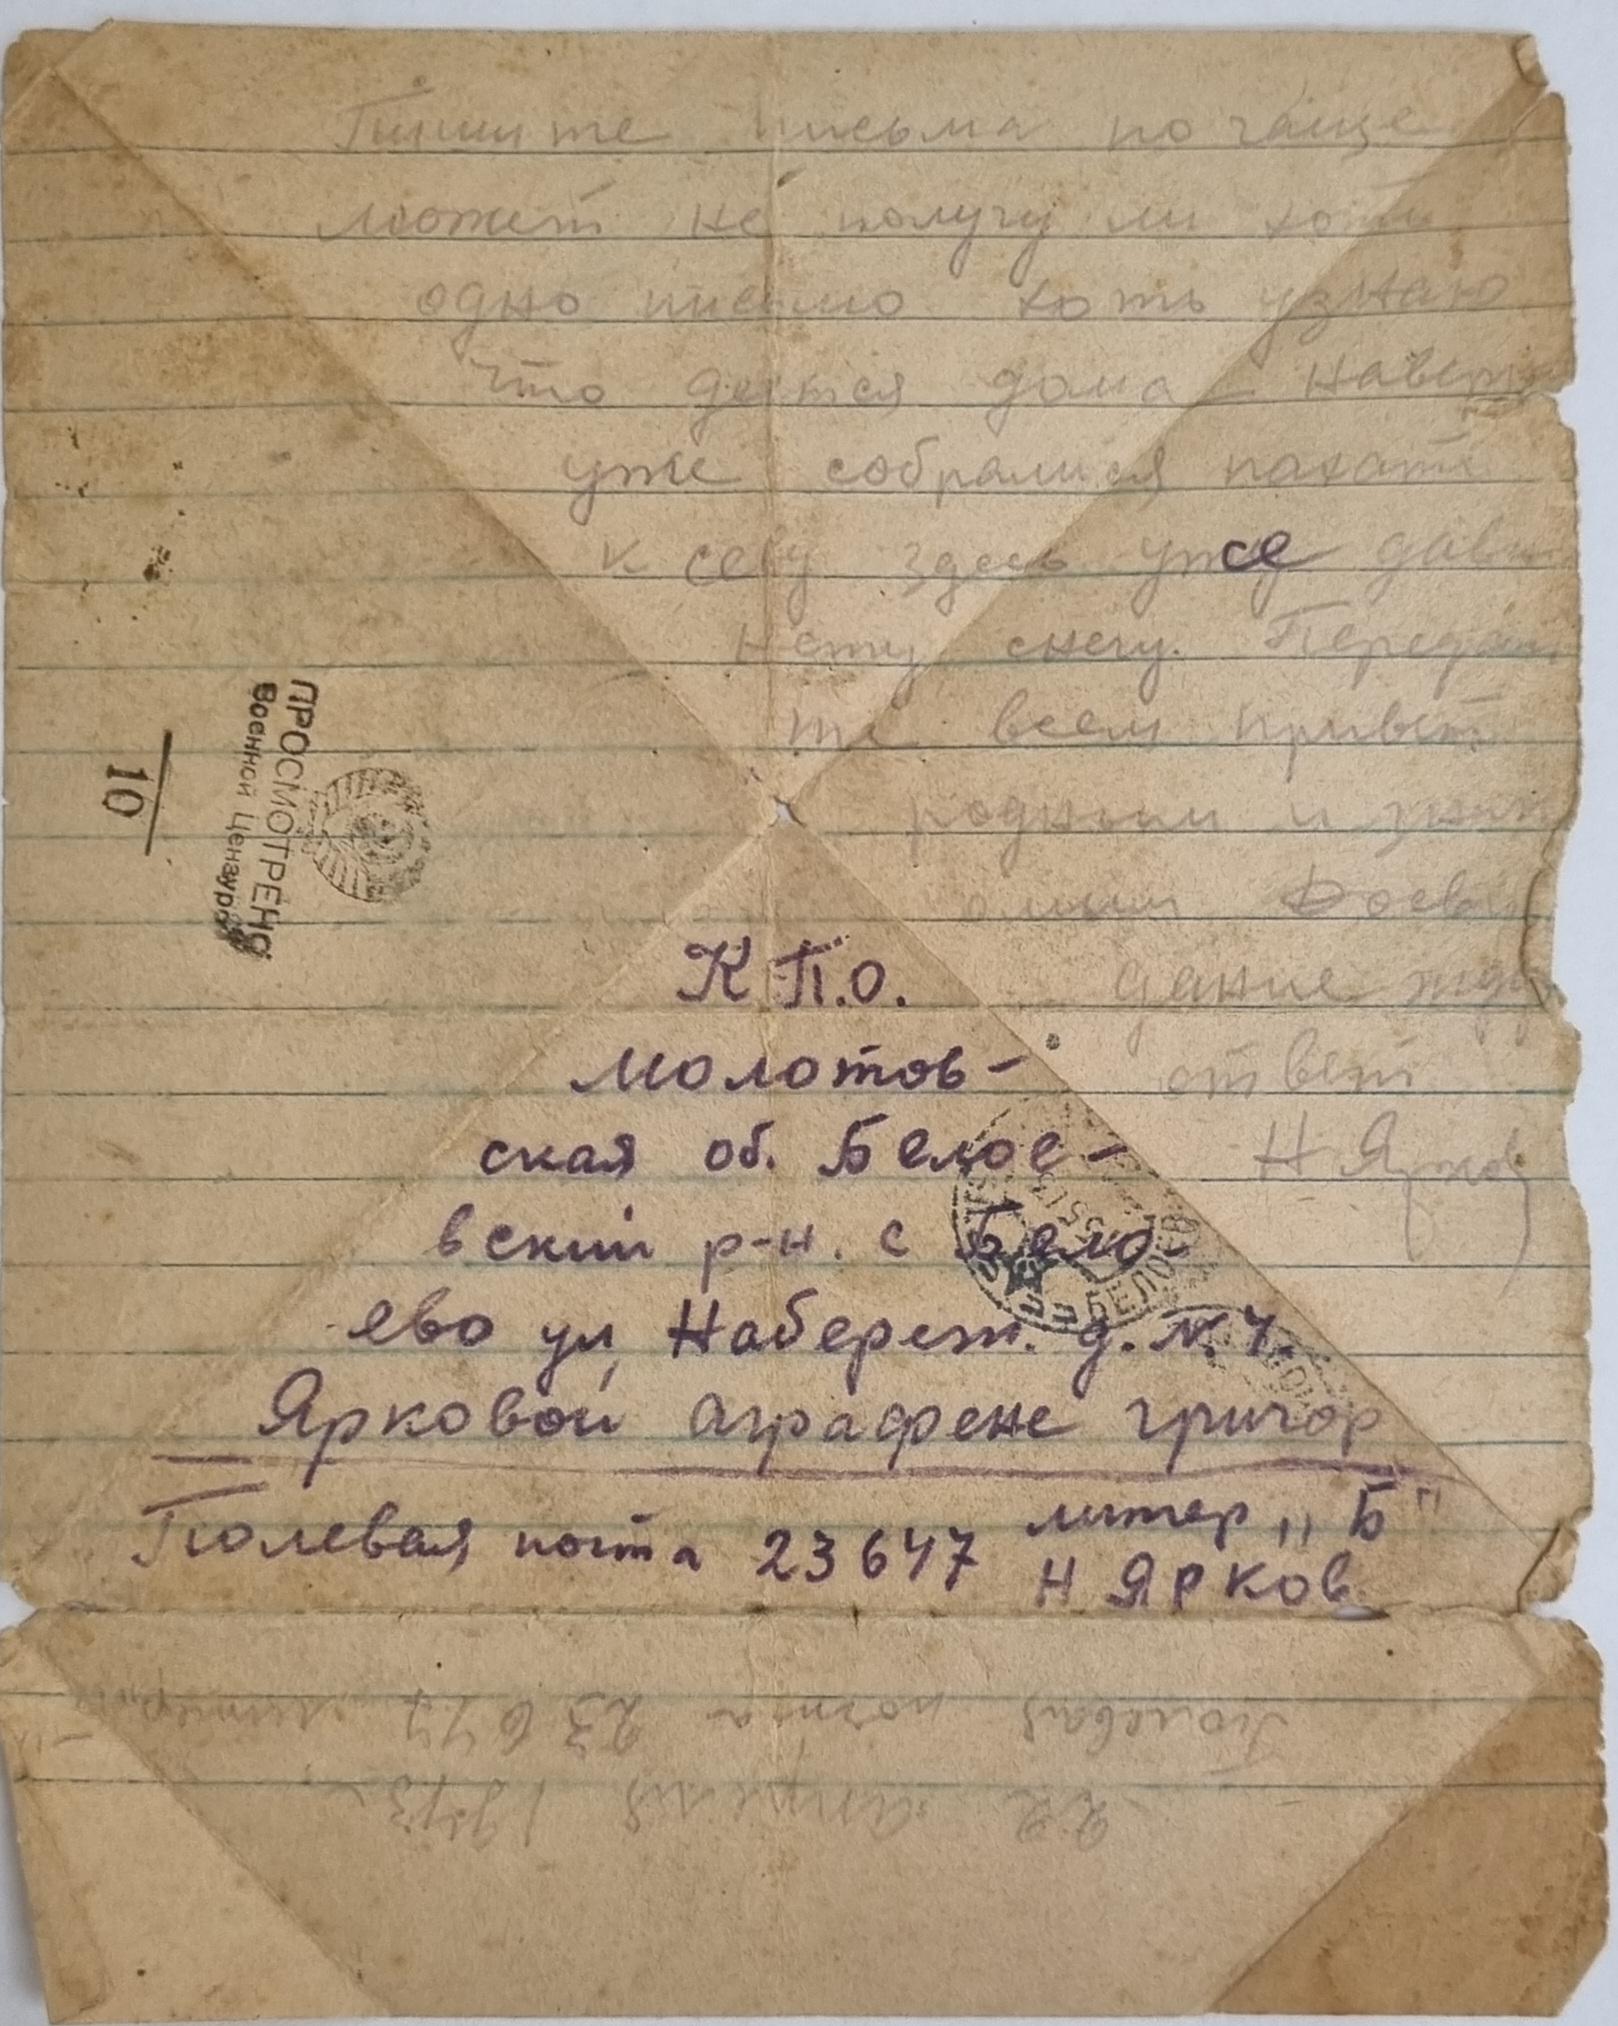 Пишите письма по чаще
может не получу ли хоть
одно письмо хоть узнаю
что деется дома – наверн
уже собралися пахать
к севу здесь уже давн
нету снегу. Передай
те всем привет
родным и знак
омым Досви
дание жду
ответ
Н Ярков
ПРОСМОТРЕНО
Военной Цензурой
10
К П.О.
Молотов-
ская об. Белое-
вский р-н. с Бело-
ево ул Набереж. д. N. 4.
Ярковой аграфене григор
Полевая почта 23647 литер „Б"
Н Ярков
Полевая почта 23647 литер
22 апреля 1943 г